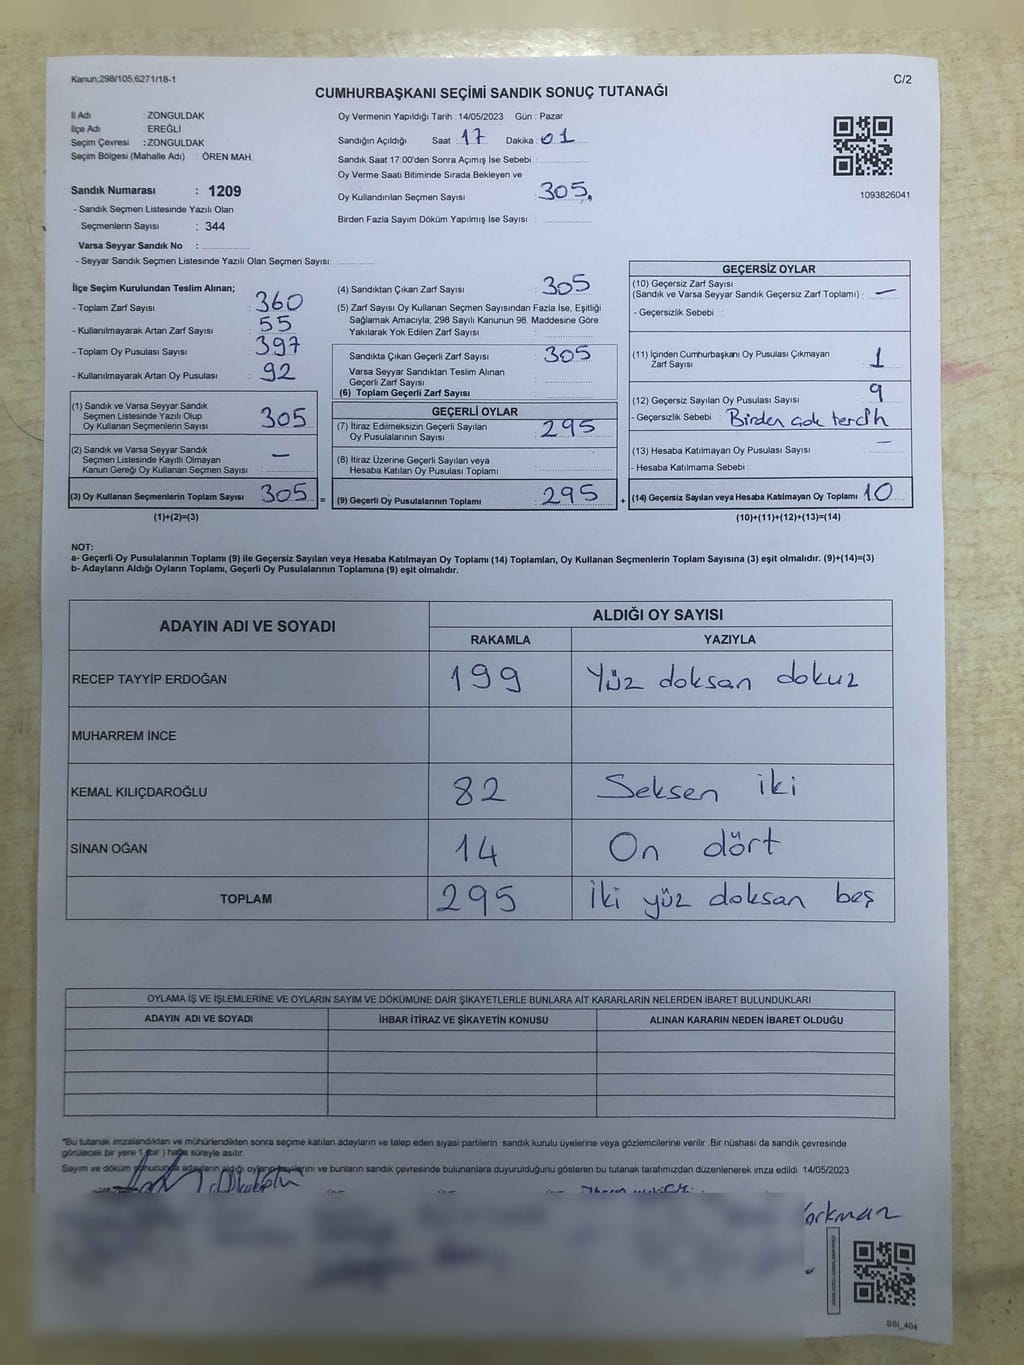 Kanun;298/105;6271/18-1
C/2
CUMHURBAŞKANI SEÇİMİ SANDIK SONUÇ TUTANAĞI
İl Adı : ZONGULDAK
İlçe Adı : EREĞLİ
Seçim Çevresi : ZONGULDAK
Seçim Bölgesi (Mahalle Adı) : ÖREN MAH.
Sandık Numarası : 1209
- Sandık Seçmen Listesinde Yazılı Olan
Seçmenlerin Sayısı : 344
Varsa Seyyar Sandık No : ............
- Seyyar Sandık Seçmen Listesinde Yazılı Olan Seçmen Sayısı: ............
Oy Vermenin Yapıldığı Tarih : 14/05/2023 Gün : Pazar
Sandığın Açıldığı Saat : 17 Dakika : 01
Sandık Saat 17:00'den Sonra Açımış İse Sebebi : ............
Oy Verme Saati Bitiminde Sırada Bekleyen ve
Oy Kullandırılan Seçmen Sayısı : 305
Birden Fazla Sayım Döküm Yapılmış İse Sayısı : ............
1093826041
İlçe Seçim Kurulundan Teslim Alınan;
- Toplam Zarf Sayısı : 360
- Kullanılmayarak Artan Zarf Sayısı : 55
- Toplam Oy Pusulası Sayısı : 397
- Kullanılmayarak Artan Oy Pusulası : 92
(1) Sandık ve Varsa Seyyar Sandık
Seçmen Listesinde Yazılı Olup
Oy Kullanan Seçmenlerin Sayısı : 305
(2) Sandık ve Varsa Seyyar Sandık
Seçmen Listesinde Kayıtlı Olmayan
Kanun Gereği Oy Kullanan Seçmen Sayısı : —
(3) Oy Kullanan Seçmenlerin Toplam Sayısı : 305 =
(1)+(2)=(3)
(4) Sandıktan Çıkan Zarf Sayısı : 305
(5) Zarf Sayısı Oy Kullanan Seçmen Sayısından Fazla İse, Eşitliği
Sağlamak Amacıyla; 298 Sayılı Kanunun 98. Maddesine Göre
Yakılarak Yok Edilen Zarf Sayısı : ............
Sandıkta Çıkan Geçerli Zarf Sayısı : 305
Varsa Seyyar Sandıktan Teslim Alınan
Geçerli Zarf Sayısı : ............
(6) Toplam Geçerli Zarf Sayısı : ............
GEÇERLİ OYLAR
(7) İtiraz Edilmeksizin Geçerli Sayılan
Oy Pusulalarının Sayısı : 295
(8) İtiraz Üzerine Geçerli Sayılan veya
Hesaba Katılan Oy Pusulası Toplamı : ............
(9) Geçerli Oy Pusulalarının Toplamı : 295 +
GEÇERSİZ OYLAR
(10) Geçersiz Zarf Sayısı
(Sandık ve Varsa Seyyar Sandık Geçersiz Zarf Toplamı) : —
- Geçersizlik Sebebi :
(11) İçinden Cumhurbaşkanı Oy Pusulası Çıkmayan
Zarf Sayısı : 1
(12) Geçersiz Sayılan Oy Pusulası Sayısı : 9
- Geçersizlik Sebebi : Birden çok tercih
(13) Hesaba Katılmayan Oy Pusulası Sayısı : —
- Hesaba Katılmama Sebebi :
(14) Geçersiz Sayılan veya Hesaba Katılmayan Oy Toplamı : 10
(10)+(11)+(12)+(13)=(14)
NOT:
a- Geçerli Oy Pusulalarının Toplamı (9) ile Geçersiz Sayılan veya Hesaba Katılmayan Oy Toplamı (14) Toplamları, Oy Kullanan Seçmenlerin Toplam Sayısına (3) eşit olmalıdır. (9)+(14)=(3)
b- Adayların Aldığı Oyların Toplamı, Geçerli Oy Pusulalarının Toplamına (9) eşit olmalıdır.
ADAYIN ADI VE SOYADI
ALDIĞI OY SAYISI
RAKAMLA YAZIYLA
RECEP TAYYİP ERDOĞAN 199 Yüz doksan dokuz
MUHARREM İNCE
KEMAL KILIÇDAROĞLU 82 Seksen iki
SİNAN OĞAN 14 On dört
TOPLAM 295 İki yüz doksan beş
OYLAMA İŞ VE İŞLEMLERİNE VE OYLARIN SAYIM VE DÖKÜMÜNE DAİR ŞİKAYETLERLE BUNLARA AİT KARARLARIN NELERDEN İBARET BULUNDUKLARI
ADAYIN ADI VE SOYADI İHBAR İTİRAZ VE ŞİKAYETİN KONUSU ALINAN KARARIN NEDEN İBARET OLDUĞU
*Bu tutanak imzalandıktan ve mühürlendikten sonra seçime katılan adayların ve talep eden siyasi partilerin sandık kurulu üyelerine veya gözlemcilerine verilir .Bir nüshası da sandık çevresinde
görülecek bir yere 1 (bir) hafta süreyle asılır.
Sayım ve döküm sonucunda adayların aldığı oyların sayılarını ve bunların sandık çevresinde bulunanlara duyurulduğunu gösteren bu tutanak tarafımızdan düzenlenerek imza edildi. 14/05/2023
SSI_404